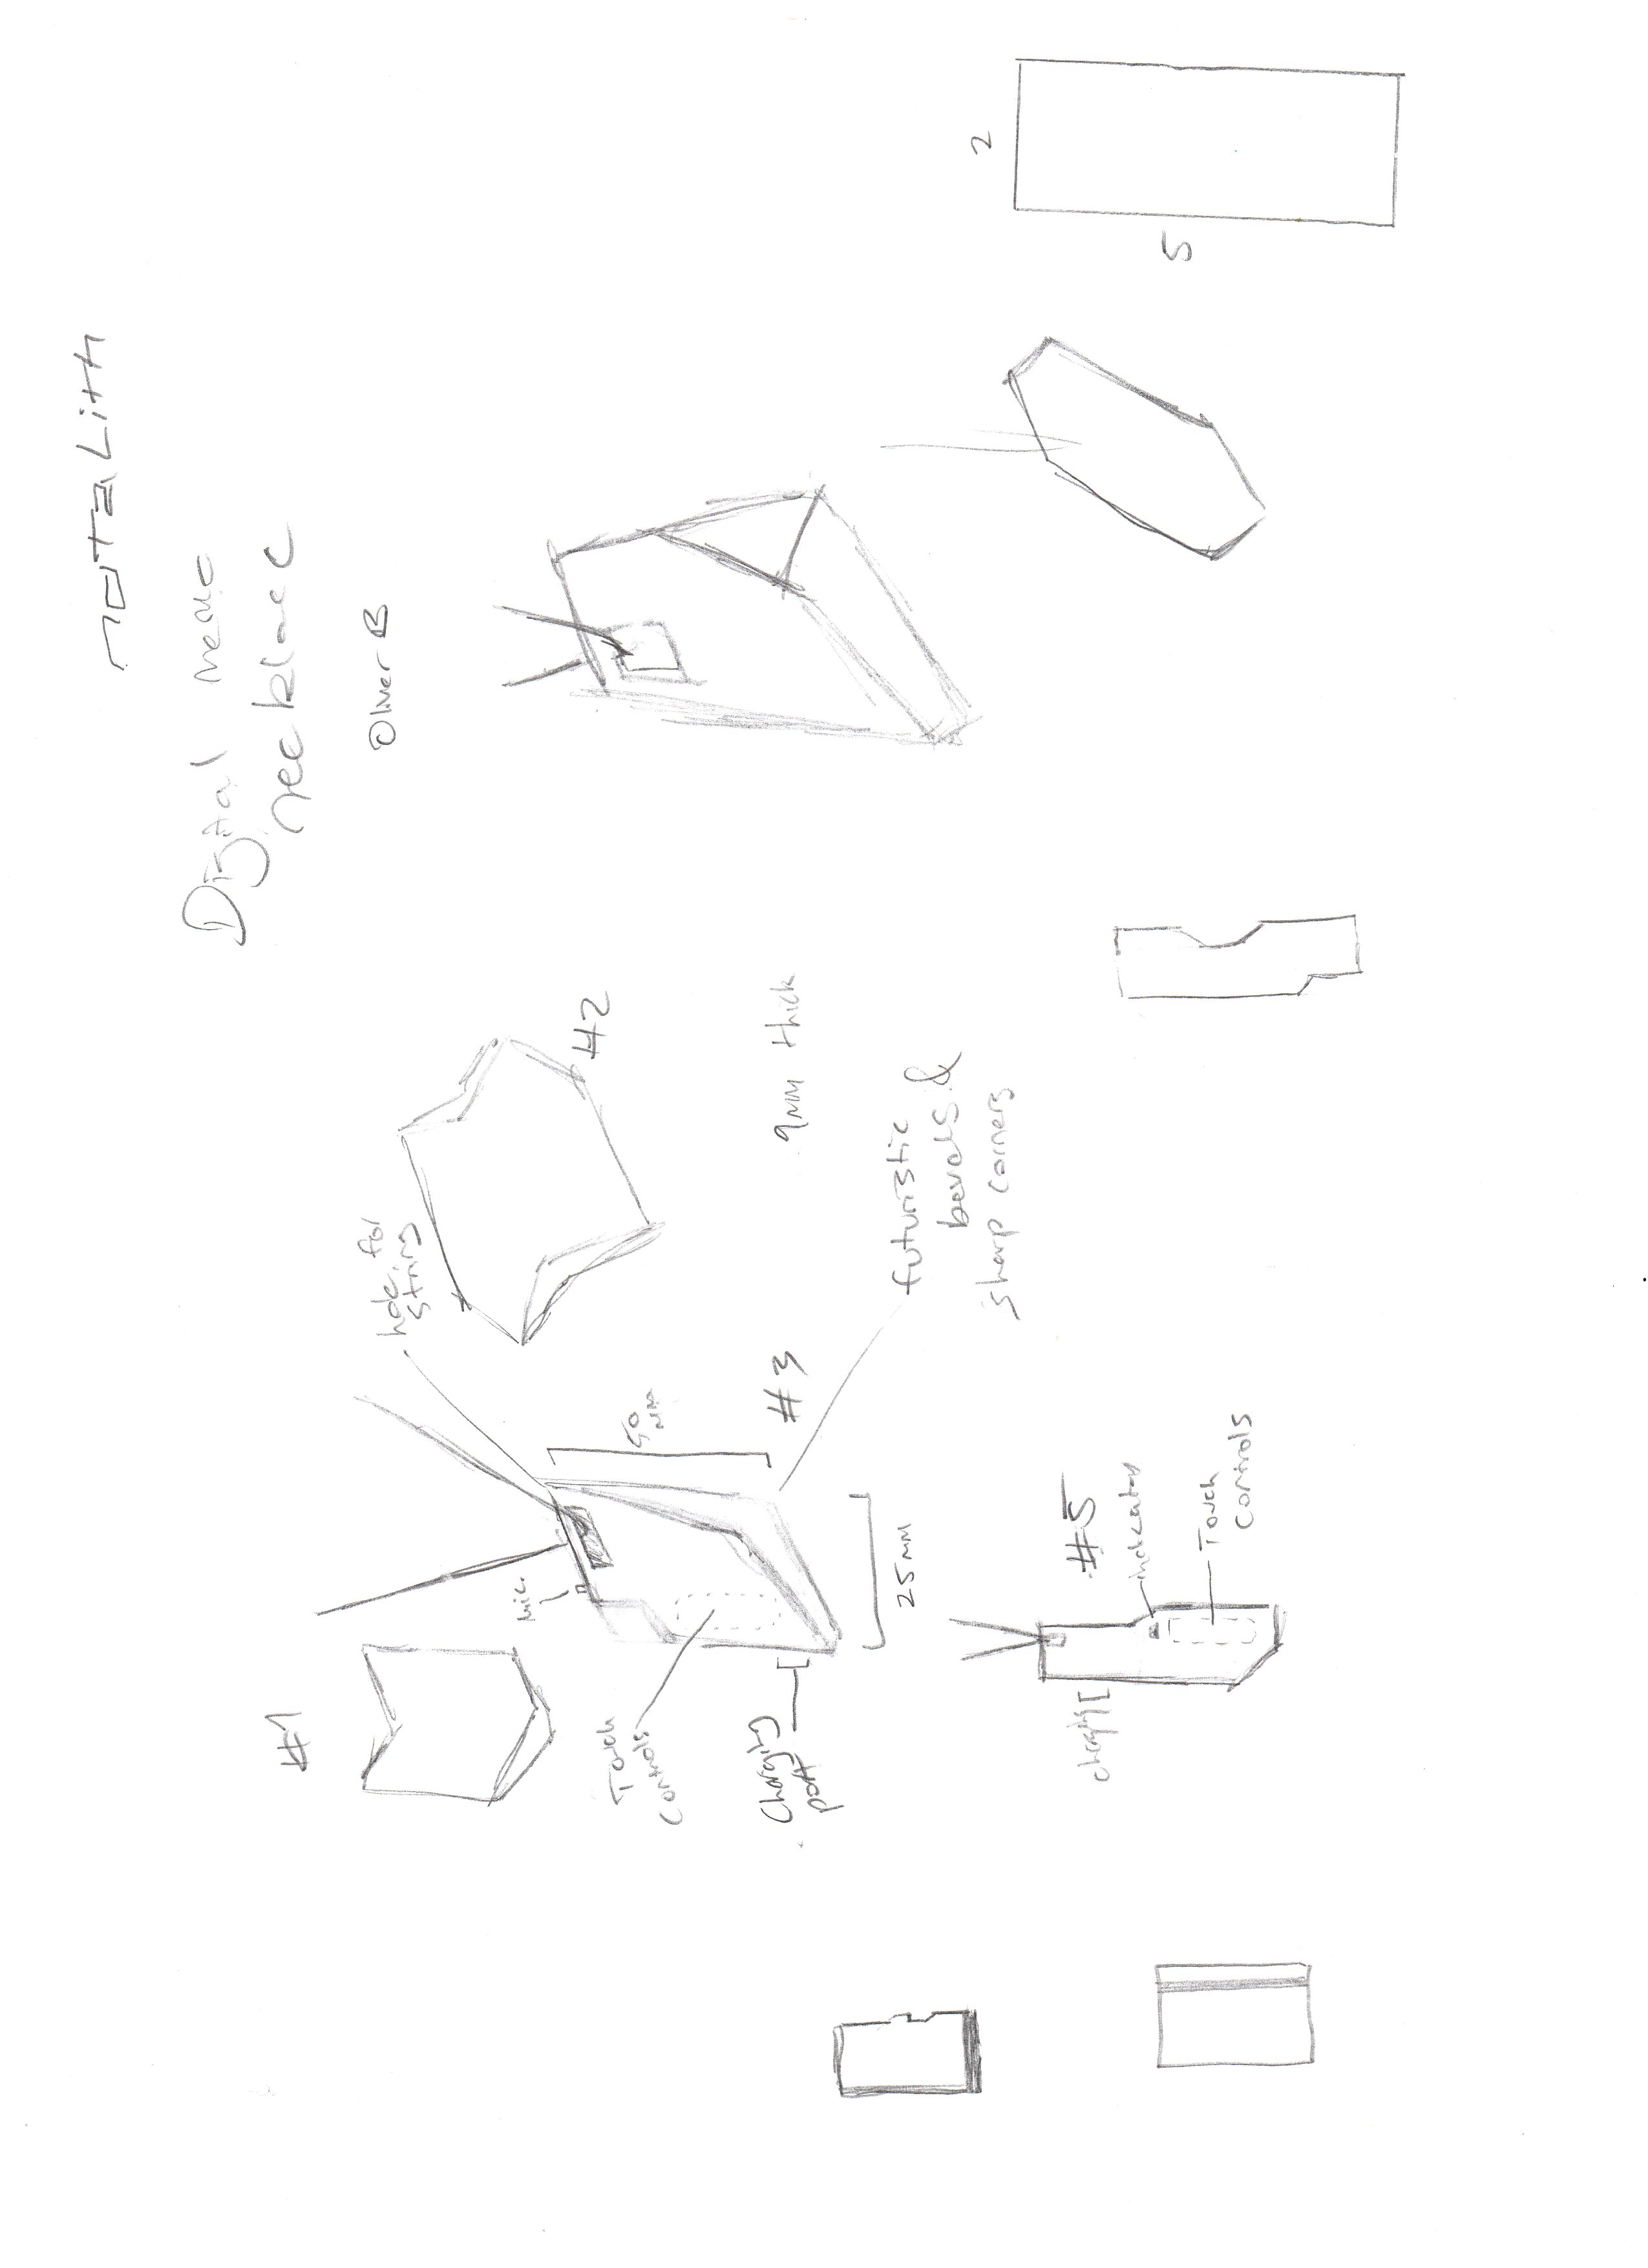 notaLith
Digital meme
necklace
Oliver B
#1
hole for
string
Mic.
#2
Touch
Controls
50
mm
Charging
port
#3
9mm thick
25mm
futuristic
bevels &
sharp corners
2
5
#5
charging
indicator
Touch
controls